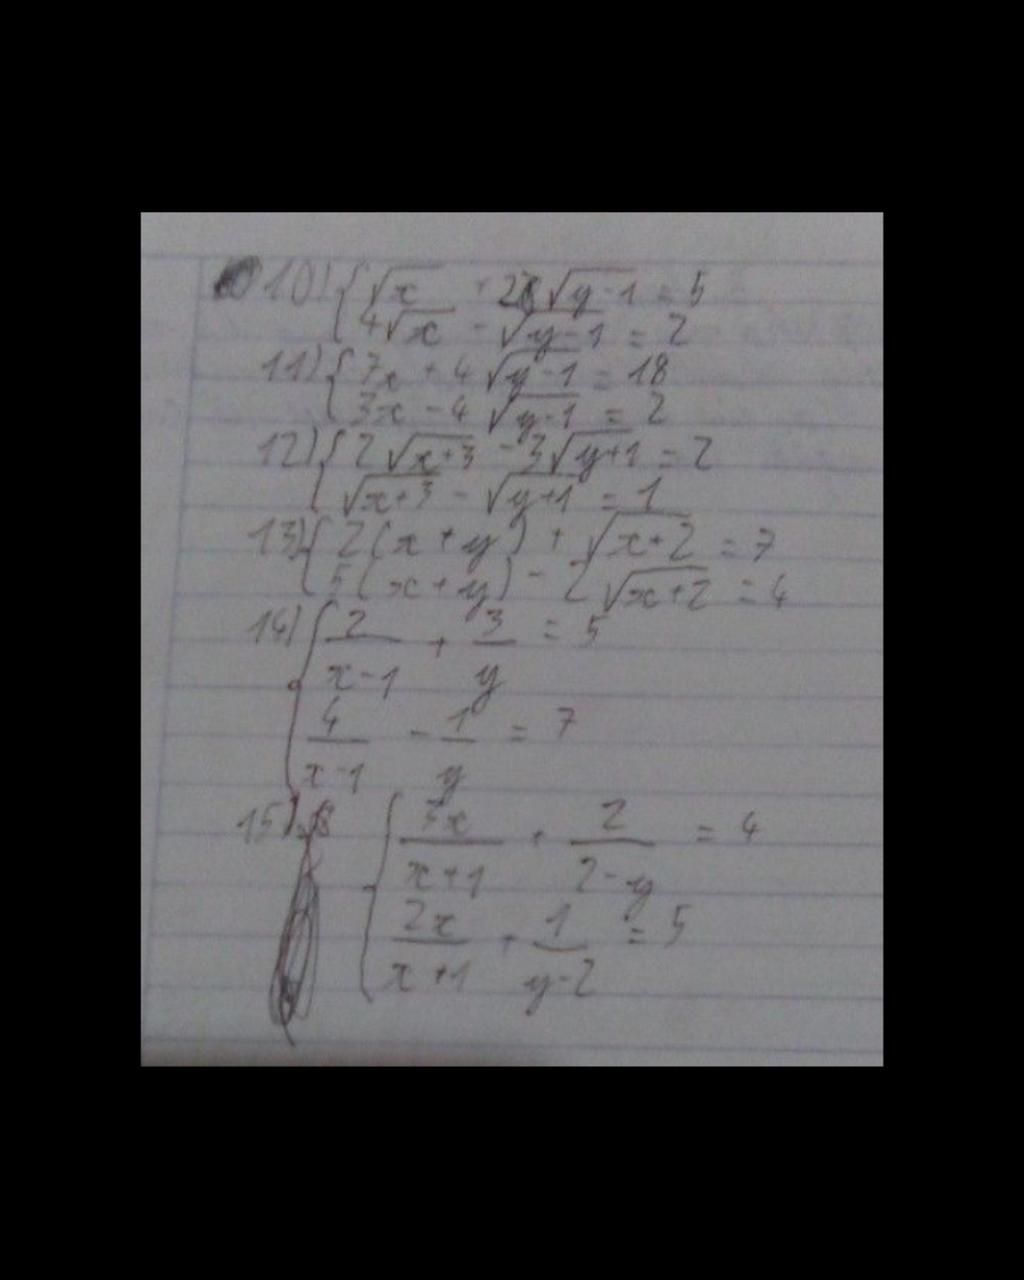 10) { √x + 2√y-1 = 5
4√x - √y-1 = 2
11) { 7x + 4√y-1 = 18
3x - 4√y-1 = 2
12) { 2√x+3 - 3√y+1 = 2
√x+3 - √y+1 = 1
13) { 2(x+y) + √x+2 = 7
5(x+y) - 2√x+2 = 4
14) { 2/x-1 + 3/y = 5
4/x-1 - 1/y = 7
15) { 3x/x+1 + 2/2-y = 4
2x/x+1 + 1/y-2 = 5